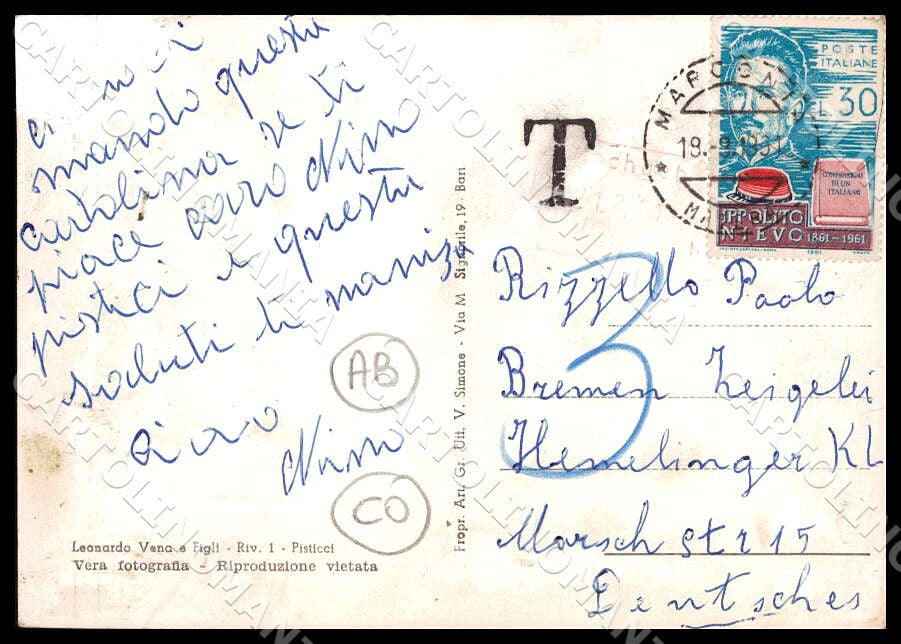 mando questa
cartolina se ti
piace caro Nino
pisticci e questa
saluti ti manina
Ciao
Nino
AB
CO
Leonardo Vena e Figli - Riv. 1 - Pisticci
Vera fotografia - Riproduzione vietata
Propr. Art. Gr. Uff. V. Simone - Via M Signorile, 19. Bari
T
18.-9.1961
POSTE
ITALIANE
L 30
CONFESSIONI
DI UN
ITALIANO
IPPOLITO
NIEVO 1861-1961
3
Rizzello Paolo
Bremen Zeigelei
Hemelinger Kl
Marsch str 15
Deutsches
CARTOLINOMANTI